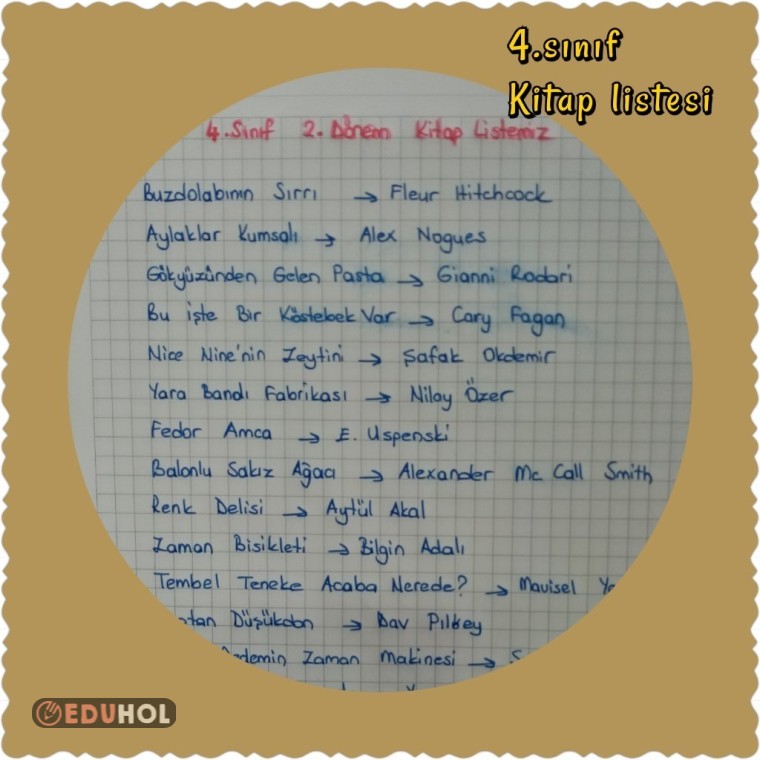 4.sınıf
Kitap listesi
4.Sınıf 2.Dönem Kitap Listemiz
Buzdolabının Sırrı → Fleur Hitchcock
Aylaklar Kumsalı → Alex Nogues
Gökyüzünden Gelen Pasta → Gianni Rodari
Bu işte Bir Köstebek Var → Cary Fagan
Nice Nine'nin Zeytini → Şafak Okdemir
Yara Bandı Fabrikası → Nilay Özer
Fedor Amca → E. Uspenski
Balonlu Sakız Ağacı → Alexander Mc Call Smith
Renk Delisi → Aytül Akal
Zaman Bisikleti → Bilgin Adalı
Tembel Teneke Acaba Nerede? → Mavisel
Düşükdon → Dav Pilkey
Zaman Makinesi →
EDUHOL